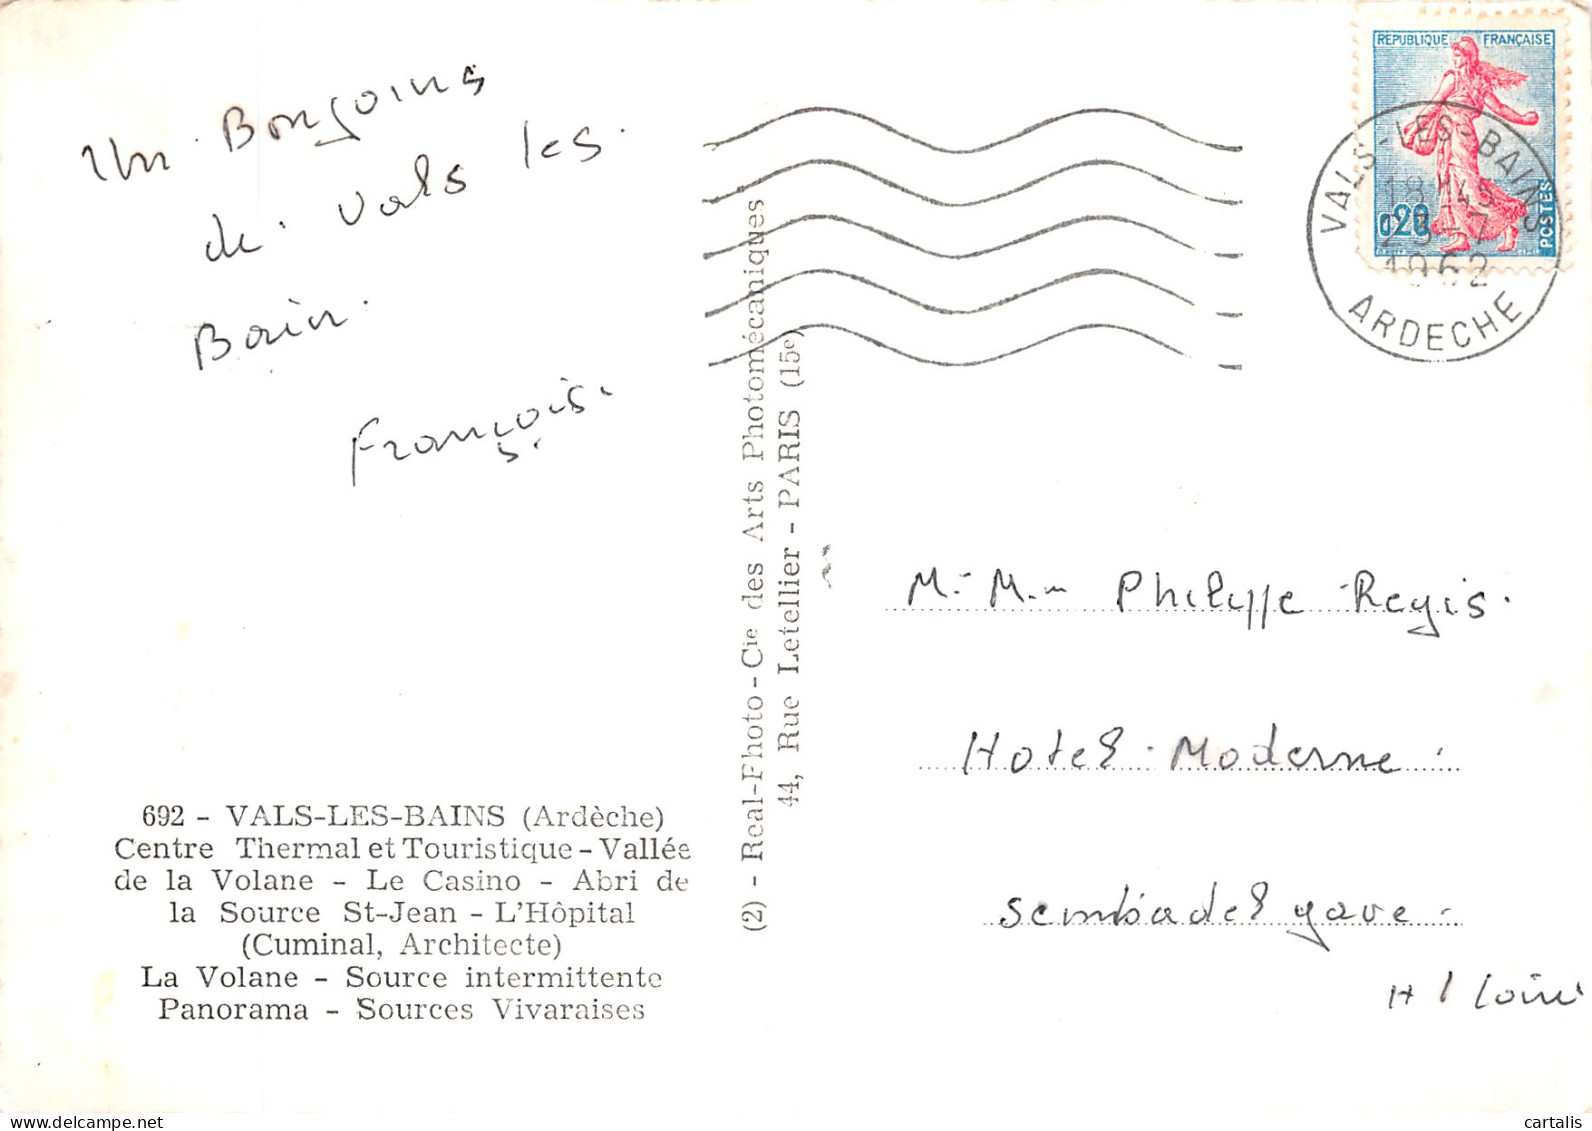 Un Bonjoins
de Vals les
Bain
François.
692 - VALS-LES-BAINS (Ardèche)
Centre Thermal et Touristique - Vallée
de la Volane - Le Casino - Abri de
la Source St-Jean - L'Hôpital
(Cuminal, Architecte)
La Volane - Source intermittente
Panorama - Sources Vivaraises
(2) - Real-Photo - Cie des Arts Photomécaniques
44, Rue Letellier - PARIS (15e)
REPUBLIQUE FRANÇAISE
0,20
POSTES
VALS-LES-BAINS
18H45
23-7
1962
ARDECHE
M. Mm Philippe Regis.
Hotel Moderne
sembadel gare
H / Loire
cartalis